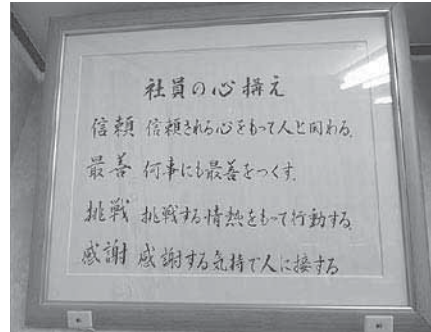 社員の心構え
信頼 信頼される心をもって人と関わる。
最善 何事にも最善をつくす。
挑戦 挑戦する情熱をもって行動する。
感謝 感謝する気持で人に接する